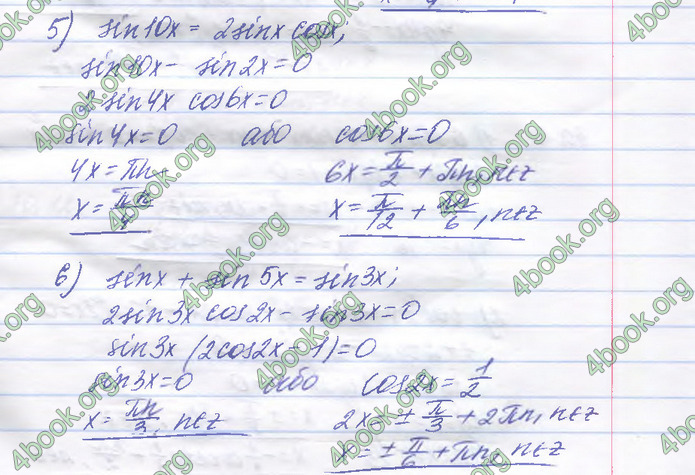 5) sin10x = 2sinx cosx,
sin10x - sin2x=0
2 sin4x cos6x=0
sin4x=0 або cos6x=0
4x=πn 6x=π/2 + πn, n∈z
x=πn/4 x=π/12 + πn/6, n∈z
6) sinx + sin 5x = sin3x;
2sin3x cos2x - sin3x=0
sin3x (2cos2x - 1)=0
sin3x=0 або cos2x=1/2
x=πn/3, n∈z 2x=±π/3+2πn, n∈z
x=±π/6+πn, n∈z
4book.org